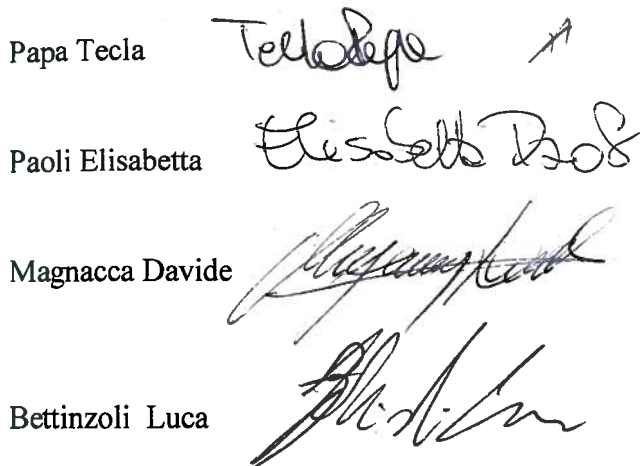 Papa Tecla Tecla Papa
Paoli Elisabetta Elisabetta Paoli
Magnacca Davide
Bettinzoli Luca